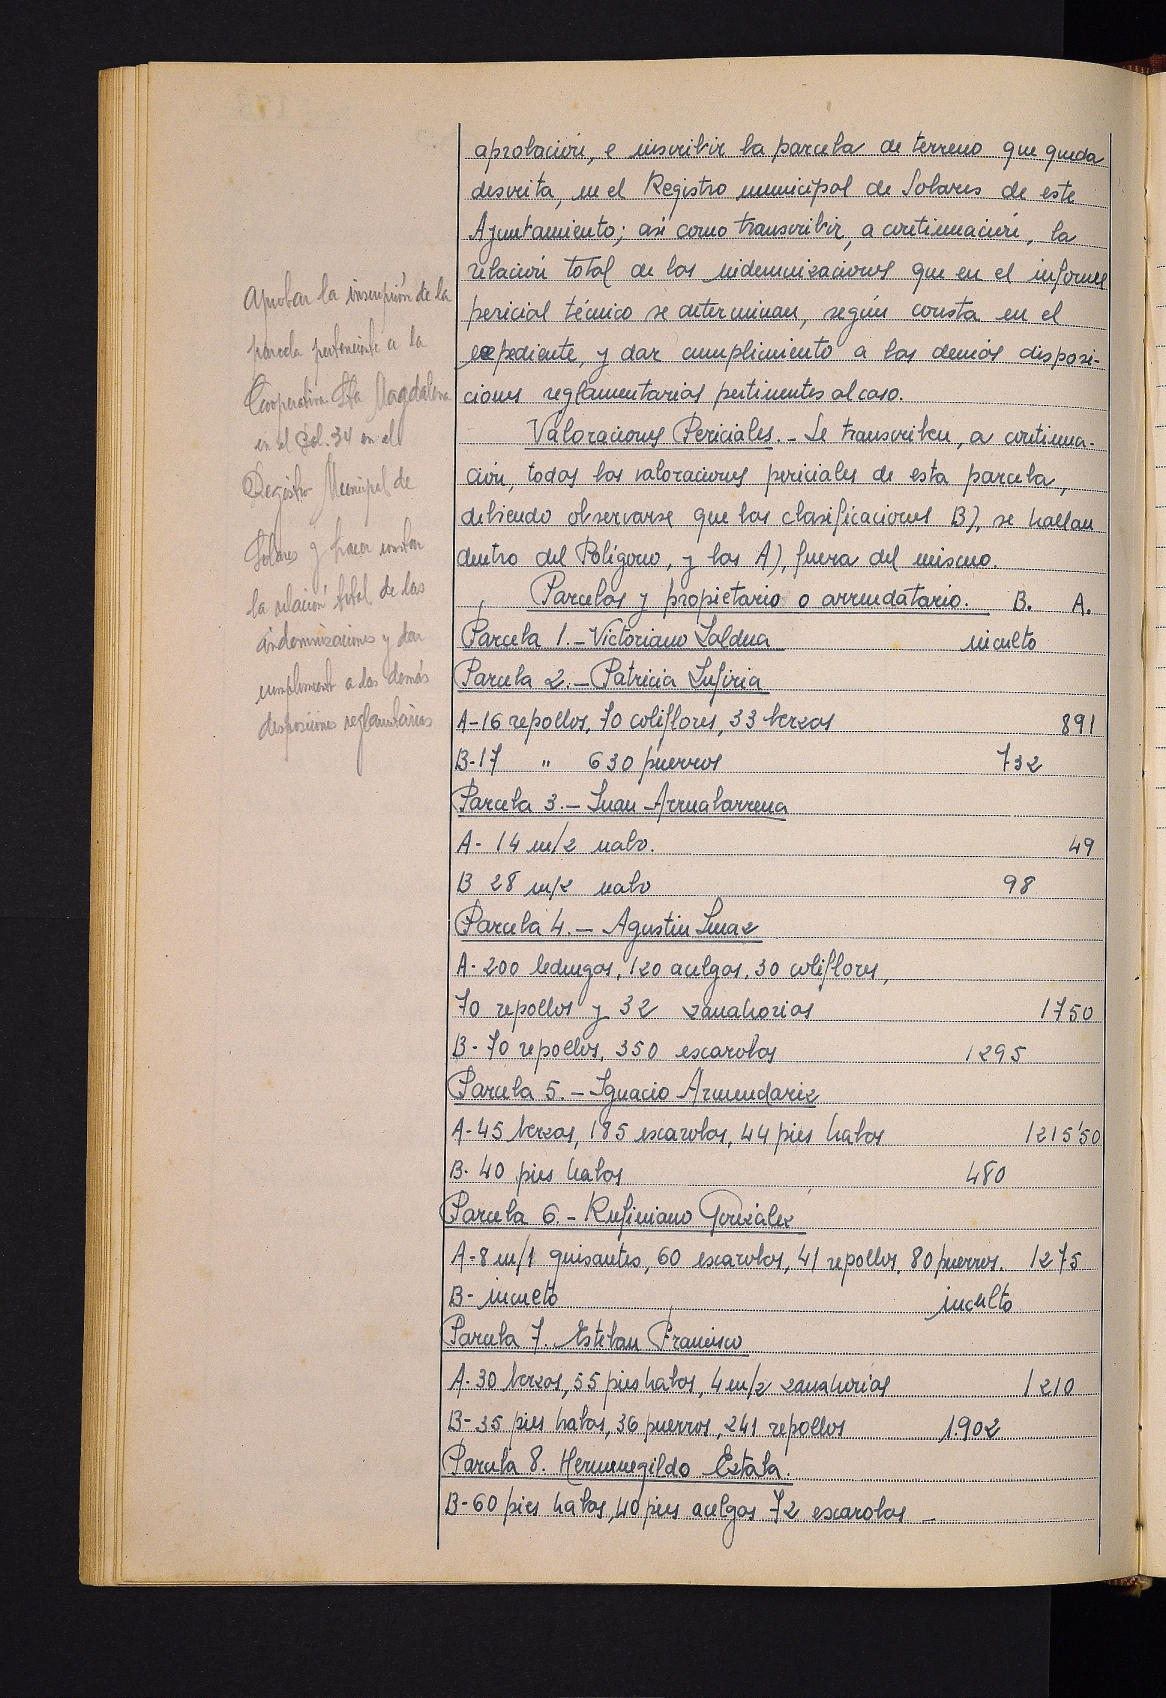 aprobación, e inscribir la parcela de terreno que queda
descrita, en el Registro municipal de Solares de este
Ayuntamiento; así como transcribir, a continuación, la
relación total de las indemnizaciones que en el informe
pericial técnico se determinan, según consta en el
expediente, y dar cumplimiento a las demás disposi-
ciones reglamentarias pertinentes al caso.
Valoraciones Periciales.- Se transcriben, a continua-
ción, todas las valoraciones periciales de esta parcela,
debiendo observarse que las clasificaciones B), se hallan
dentro del Polígono, y las A), fuera del mismo.
Parcelas y propietario o arrendatario. B. A.
Parcela 1.- Victoriano Saldua inculto
Parcela 2.- Patricia
A-16 repollos, 70 coliflores, 33 berzas 891
B-17 " 630 puerros 732
Parcela 3.- Juan Arruabarrena
A- 14 m/2 nabo. 49
B 28 m/2 nabo 98
Parcela 4.- Agustin
A-200 lechugas, 120 acelgas, 30 coliflores,
70 repollos y 32 zanahorias 1750
B-70 repollos, 350 escarolas 1295
Parcela 5.- Ignacio Armendariz
A-45 berzas, 185 escarolas, 44 pies habas 1215'50
B- 40 pies habas 480
Parcela 6.- Rufiniano González
A-8 m/1 guisantes, 60 escarolas, 41 repollos, 80 puerros. 1275
B- inculto inculto
Parcela 7. Esteban Francisco
A-30 berzas, 55 pies habas, 4 m/2 zanahorias 1210
B-35 pies habas, 36 puerros, 241 repollos 1.902
Parcela 8. Hermenegildo Eztala.
B-60 pies habas, 40 pies acelgas 72 escarolas -
Aprobar la inscripción de la
parcela perteneciente a la
Cooperativa Sta Magdalena
en el Pol. 34 en el
Registro Municipal de
Solares y hacer constar
la relación total de las
indemnizaciones y dar
cumplimiento a las demás
disposiciones reglamentarias